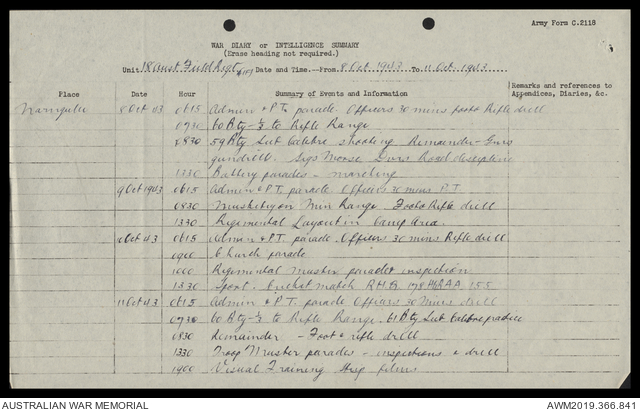 Army Form C.2118
WAR DIARY or INTELLIGENCE SUMMARY
(Erase heading not required.)
Unit 18 Aust Field Regt (AIF) Date and Time.--From 8 Oct 1943 To 11 Oct 1943
Place Date Hour Summary of Events and Information Remarks and references to Appendices, Diaries, &c.
8 Oct 43 0615 Admin & P.T. parade. Officers 30 mins foot & Rifle drill
0730 60 Bty - 1/2 to Rifle Range
0830 59 Bty Sub Calibre shooting Remainder - Guns
gundrill. Sigs Morse Dvrs Road discipline
1330 Battery parades - marching
9 Oct 1943 0615 Admin & P.T. parade Officers 30 mins P.T.
0830 Musketry on Min Range. Foot & Rifle drill
1330 Regimental Layout in Camp Area.
10 Oct 43 0615 Admin & P.T. parade. Officers 30 mins Rifle drill
0900 Church parade
1000 Regimental Muster parade & inspection
1330 Sport. Cricket match R.H.Q. 178 HRAA 155
11 Oct 43 0615 Admin & P.T. parade Officers 30 Mins drill
0730 60 Bty - 1/2 to Rifle Range. 61 Bty Sub Calibre practice
0830 Remainder - Foot & rifle drill
1330 Troop Muster parades - inspections & drill
1900 Visual Training films
AUSTRALIAN WAR MEMORIAL AWM2019.366.841